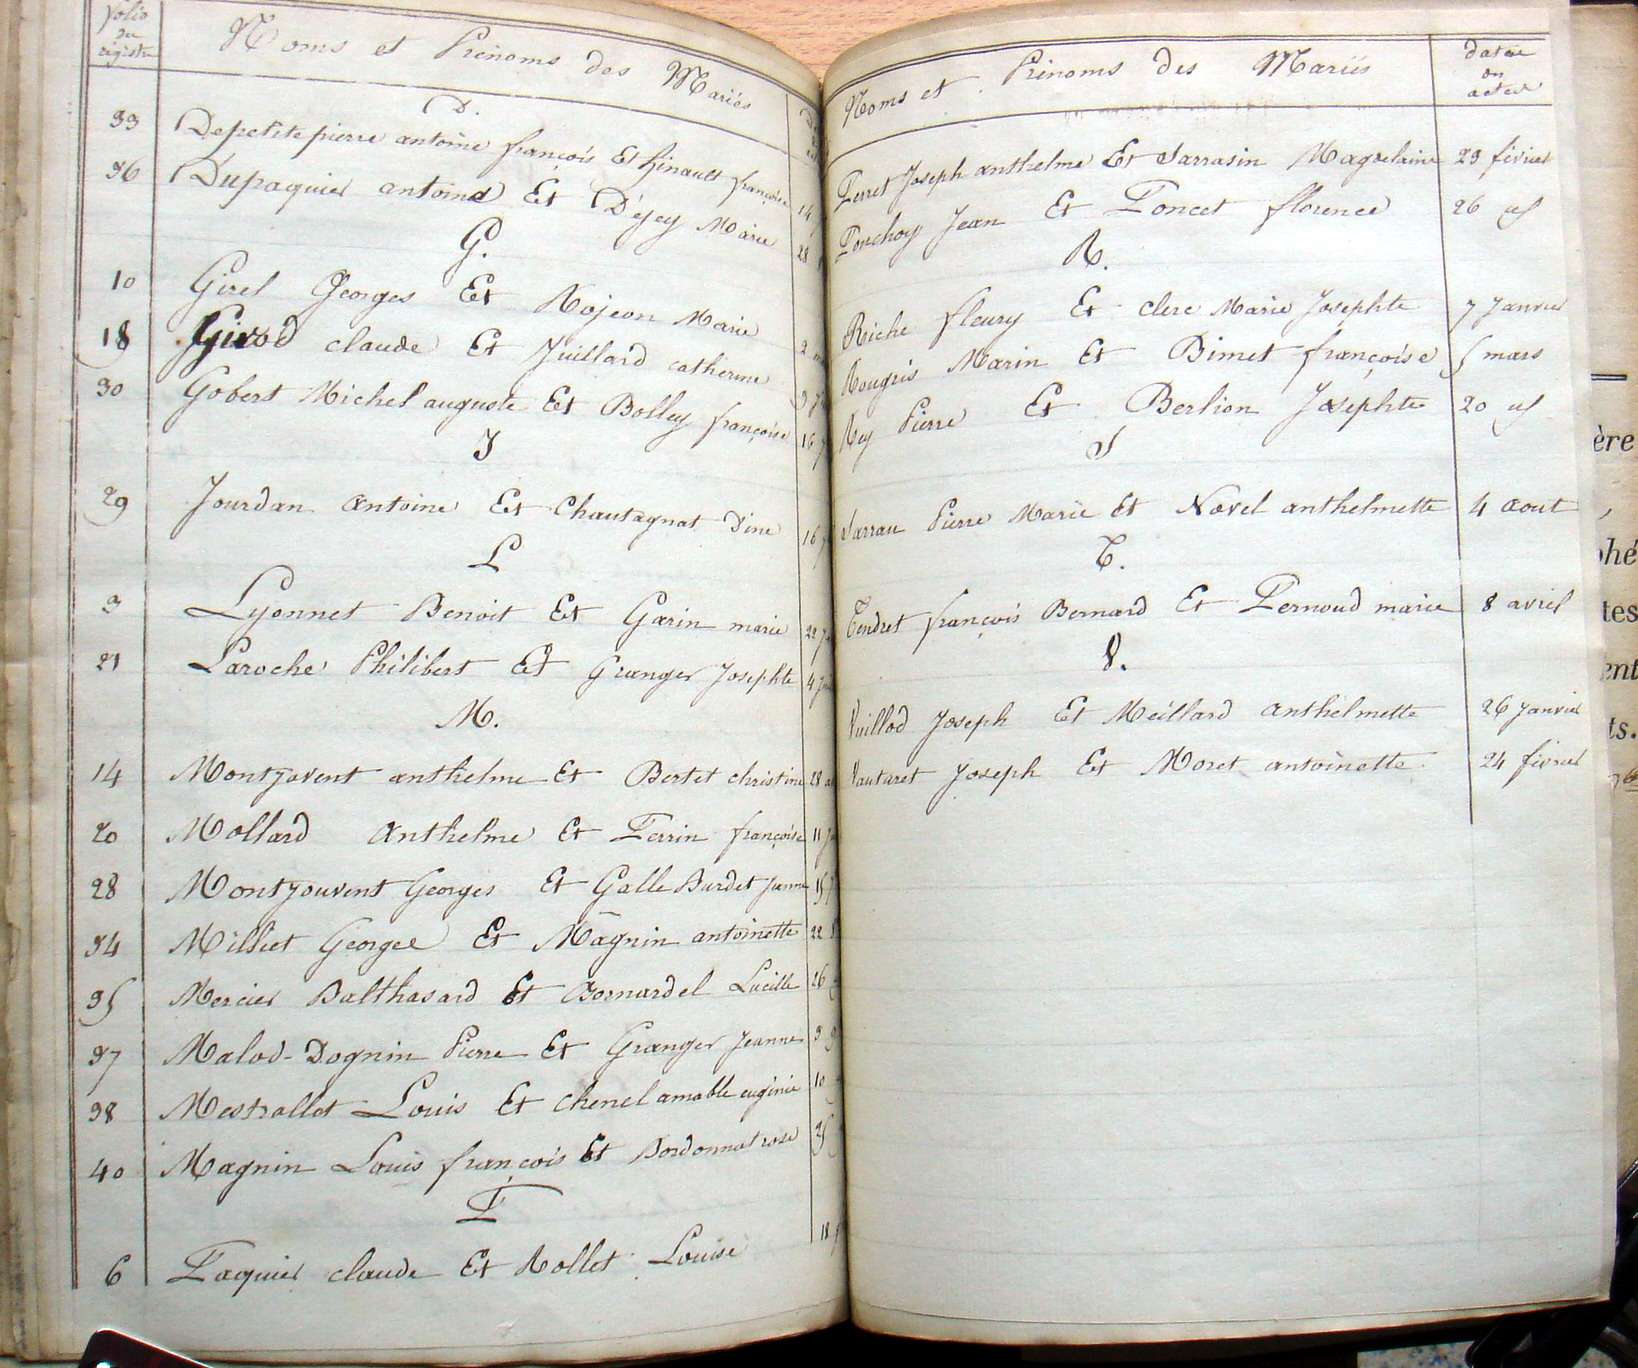 folio
du
registre
Noms et Prénoms des Mariés
D.
33 Depetitepierre antoine françois Et hinault françoise 14
36 Dupaquier antoine Et Déjey Marie 28
G.
10 Girel Georges Et Rojeon Marie 2
18 Girod claude Et Juillard catherine 3
30 Gobert Michel auguste Et Bolley françoise 16
J
29 Jourdan antoine Et Chautagnat Dine 16
L
3 Lyonnet Benoit Et Garin marie 22
21 Laroche Philibert Et Granger Josephte 4
M.
14 Montjovent anthelme Et Bertet christine 28
20 Mollard Anthelme Et Perrin françoise 11
28 Montjouvent Georges Et Galle Burdet Jeanne 15
34 Milliet George Et Magnin antoinette 22
35 Mercier Balthasard Et Bornardel Lucille 26
37 Malod-Dognin Pierre Et Granger Jeanne 3
38 Mestrallet Louis Et Chenel amable eugénie 10
40 Magnin Louis françois Et Bordonnat rose 25
P
6 Paquier claude Et Rollet Louise 18
Noms et Prénoms des Mariés
date
on
actes
Perret Joseph anthelme Et Sarrasin Magdelaine 23 février
Ponchoy Jean Et Poncet florence 26 id
R.
Riche fleury Et clerc Marie Josephte 7 Janvier
Rougris Marin Et Bimet françoise 5 mars
Rey Pierre Et Berlion Josephte 20 id
S
Sarrau Pierre Marie et Novel anthelmette 4 aout
T.
Tendret françois Bernard Et Pernoud marie 8 avril
V.
Vuillod Joseph Et Meillard anthelmette 26 Janvier
Vauturet Joseph Et Moret antoinette 24 février
ère
phé
tes
ent
ts.